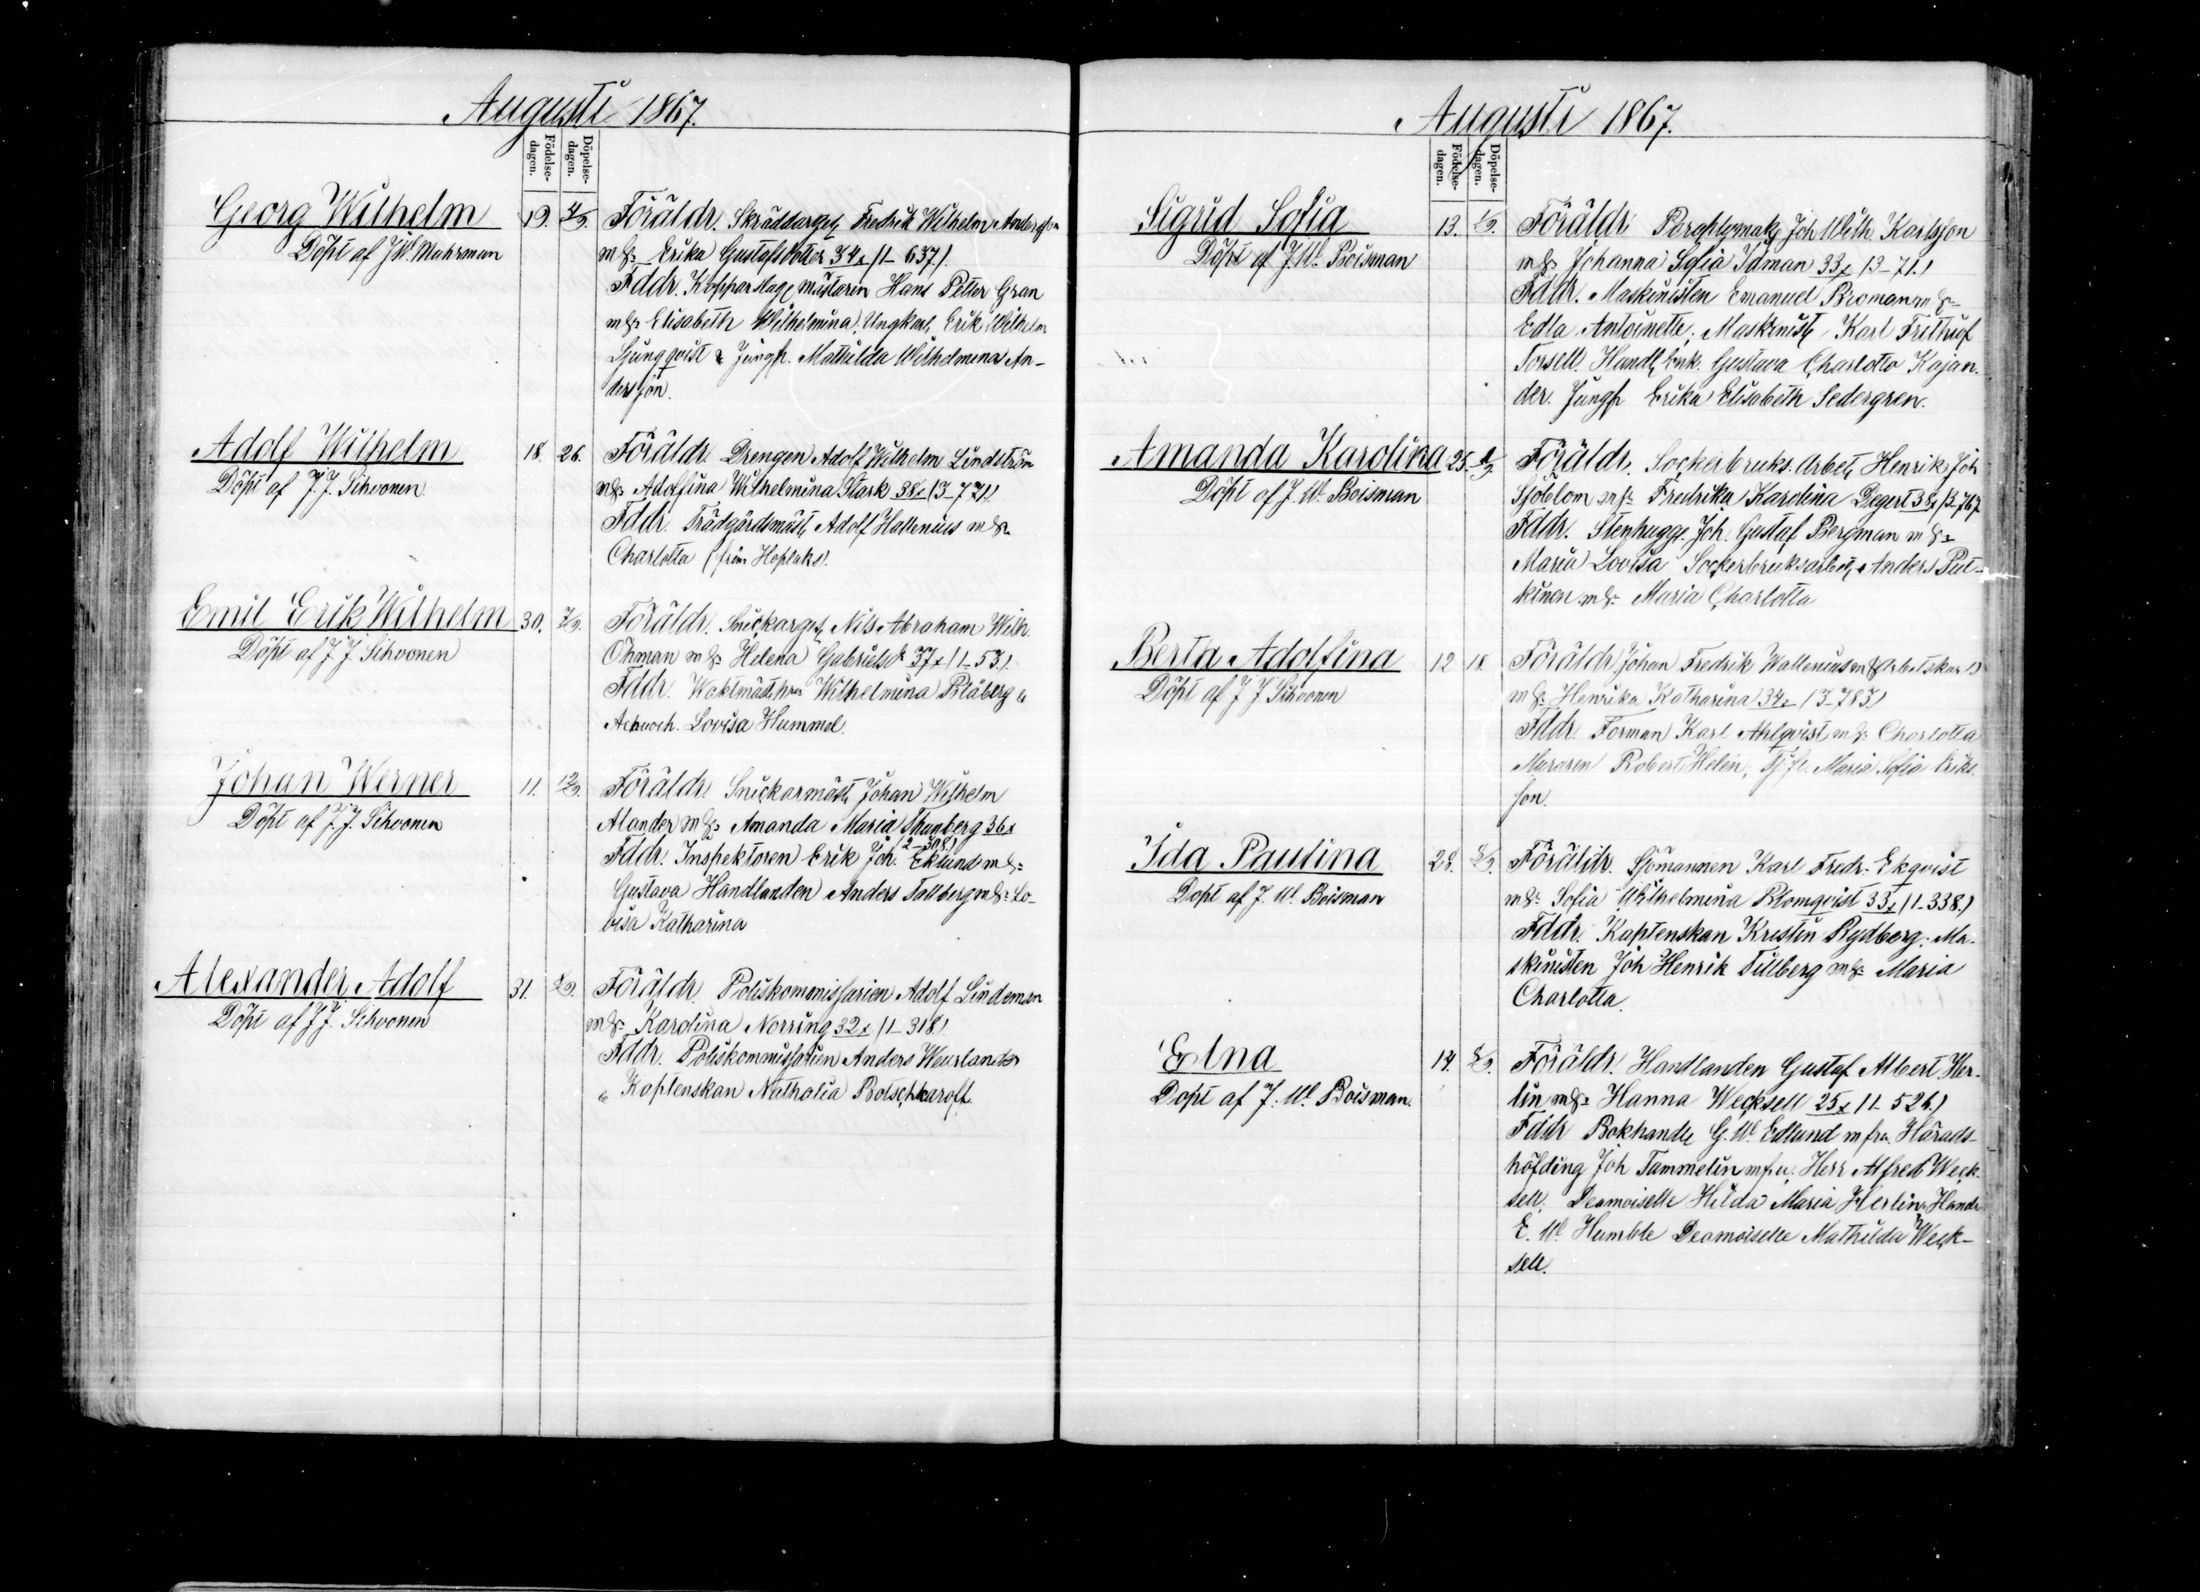 Augusti 1867.
Födelse-
dagen.
Döpelse-
dagen.
Georg Wilhelm
Döpt af J. W. Muhrman
19.
4/9.
Föräldr. Skräddarges. Fredrik Wilhelm Andersson
m h. Erika Gustafsdotter 34 x (1-637.)
Fddr. Kopparslage mästaren Hans Petter Gran
m h. Elisabeth Wilhelmina, Ungkarl Erik Wilhelm
Ljungqvist & Jungfr. Mathilda Wilhelmina An-
dersson.
Adolf Wilhelm
Döpt af J. J. Sihvonen
18.
26.
Föräldr. Drengen Adolf Wilhelm Lindström
m h. Adolfina Wilhelmina Stark 38 x (3-721.)
Fddr. Trädgårdsmäst. Adolf Hallenius m h.
Charlotta (från Hoplaks).
Emil Erik Wilhelm
Döpt af J. J. Sihvonen
30.
Föräldr. Snickarges. Nils Abraham Wilh.
Öhman m h. Helena Gabrielsdr 37 x (1-53.)
Fddr. Waktmäst. hru Wilhelmina Blåberg &
Lovisa Hummel.
Johan Werner
Döpt af J. J. Sihvonen
11.
12/9.
Föräldr. Snickarmäst. Johan Wilhelm
Alander m h. Amanda Maria Thunberg 36 x
Fddr. Inspektoren Erik Joh. Eklund m h.
Gustava Handlanden Anders Tallberg m h. Lo-
visa Katharina
Alexander Adolf
Döpt af J. J. Sihvonen
31.
Föräldr. Poliskommissarien Adolf Lindeman
m h. Karolina Norring 32 x (1-318.)
Fddr. Poliskommissarien Anders Weurlander
& Kaptenskan Nathalia Botschkaroff.
Augusti 1867.
Födelse-
dagen.
Döpelse-
dagen.
Sigrid Sofia
Döpt af J. W. Boisman
13.
Föräldr. Joh Wilh. Karlsson
m h. Johanna Sofia Idman 33 x (3-71.)
Fddr. Maskinisten Emanuel Broman m h.
Edla Antoinette; Maskinist. Karl Frithiof
Torsell. Handl. enk. Gustava Charlotta Kajan-
der. Jungfr Erika Elisabeth Sedergren.
Amanda Karolina
Döpt af J. W. Boisman
25.
Föräldr. Sockerbruks. Arbet. Henrik Joh
Sjöblom m h. Fredrika Karolina Degert 38 x (3-767
Fddr. Stenhugg. Joh. Gustaf Bergman m h.
Maria Lovisa Sockerbruksarbet. Anders Put-
kinen m h. Maria Charlotta
Berta Adolfina
Döpt af J J Sihvonen
12
18
Föräldr Johan Fredrik Wallenius
m h. Henrika Katharina 34 x (3-783)
Fddr. Forman Karl Ahlqvist m h. Charlotta
Muraren Robert Helen, Maria Sofia Eriks-
son.
Ida Paulina
Döpt af J. W. Boisman
28.
Föräldr. Sjömannen Karl Fredr. Ekqvist
m h. Sofia Wilhelmina Blomqvist 33 x (1-338.)
Fddr. Kaptenskan Kristin Rydberg. Ma-
skinisten Joh Henrik Tillberg m h. Maria
Charlotta.
Edna
Döpt af J. W. Boisman.
14.
Föräldr. Handlanden Gustaf Albert Her-
lin m h. Hanna Wecksell 25 x (1-526.)
Fddr Bokhandl. G. W. Edlund m fru. Härads-
höfding Joh Tammelin m fru. Herr Alfred Weck-
sell. Demoiselle Hilda Maria Herlin. Handl
E. W. Humble Demoiselle Mathilda Weck-
sell.